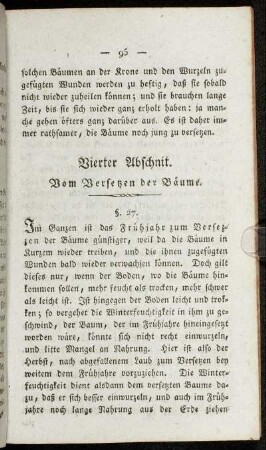 — 95 —
solchen Bäumen an der Krone und den Wurzeln zu-
gefügten Wunden werden zu heftig, daß sie sobald
nicht wieder zuheilen können; und sie brauchen lange
Zeit, bis sie sich wieder ganz erholt haben: ja man-
che gehen öfters ganz darüber aus. Es ist daher im-
mer rathsamer, die Bäume noch jung zu versetzen.
Vierter Abschnit.
Vom Versetzen der Bäume.
§. 27.
Im Ganzen ist das Frühjahr zum Versez-
zen der Bäume günstiger, weil da die Bäume in
Kurzem wieder treiben, und die ihnen zugefügten
Wunden bald wieder verwachsen können. Doch gilt
dieses nur, wenn der Boden, wo die Bäume hin-
kommen sollen, mehr feucht als trocken, mehr schwer
als leicht ist. Ist hingegen der Boden leicht und trok-
ken; so vergehet die Winterfeuchtigkeit in ihm zu ge-
schwind, der Baum, der im Frühjahre hineingesetzt
worden wäre, könnte sich nicht recht einwurzeln,
und litte Mangel an Nahrung. Hier ist also der
Herbst, nach abgefallenem Laub zum Versetzen bey
weitem dem Frühjahre vorzuziehen. Die Winter-
feuchtigkeit dient alsdann dem versetzten Baume da-
zu, daß er sich besser einwurzeln, und auch im Früh-
jahre noch lange Nahrung aus der Erde ziehen